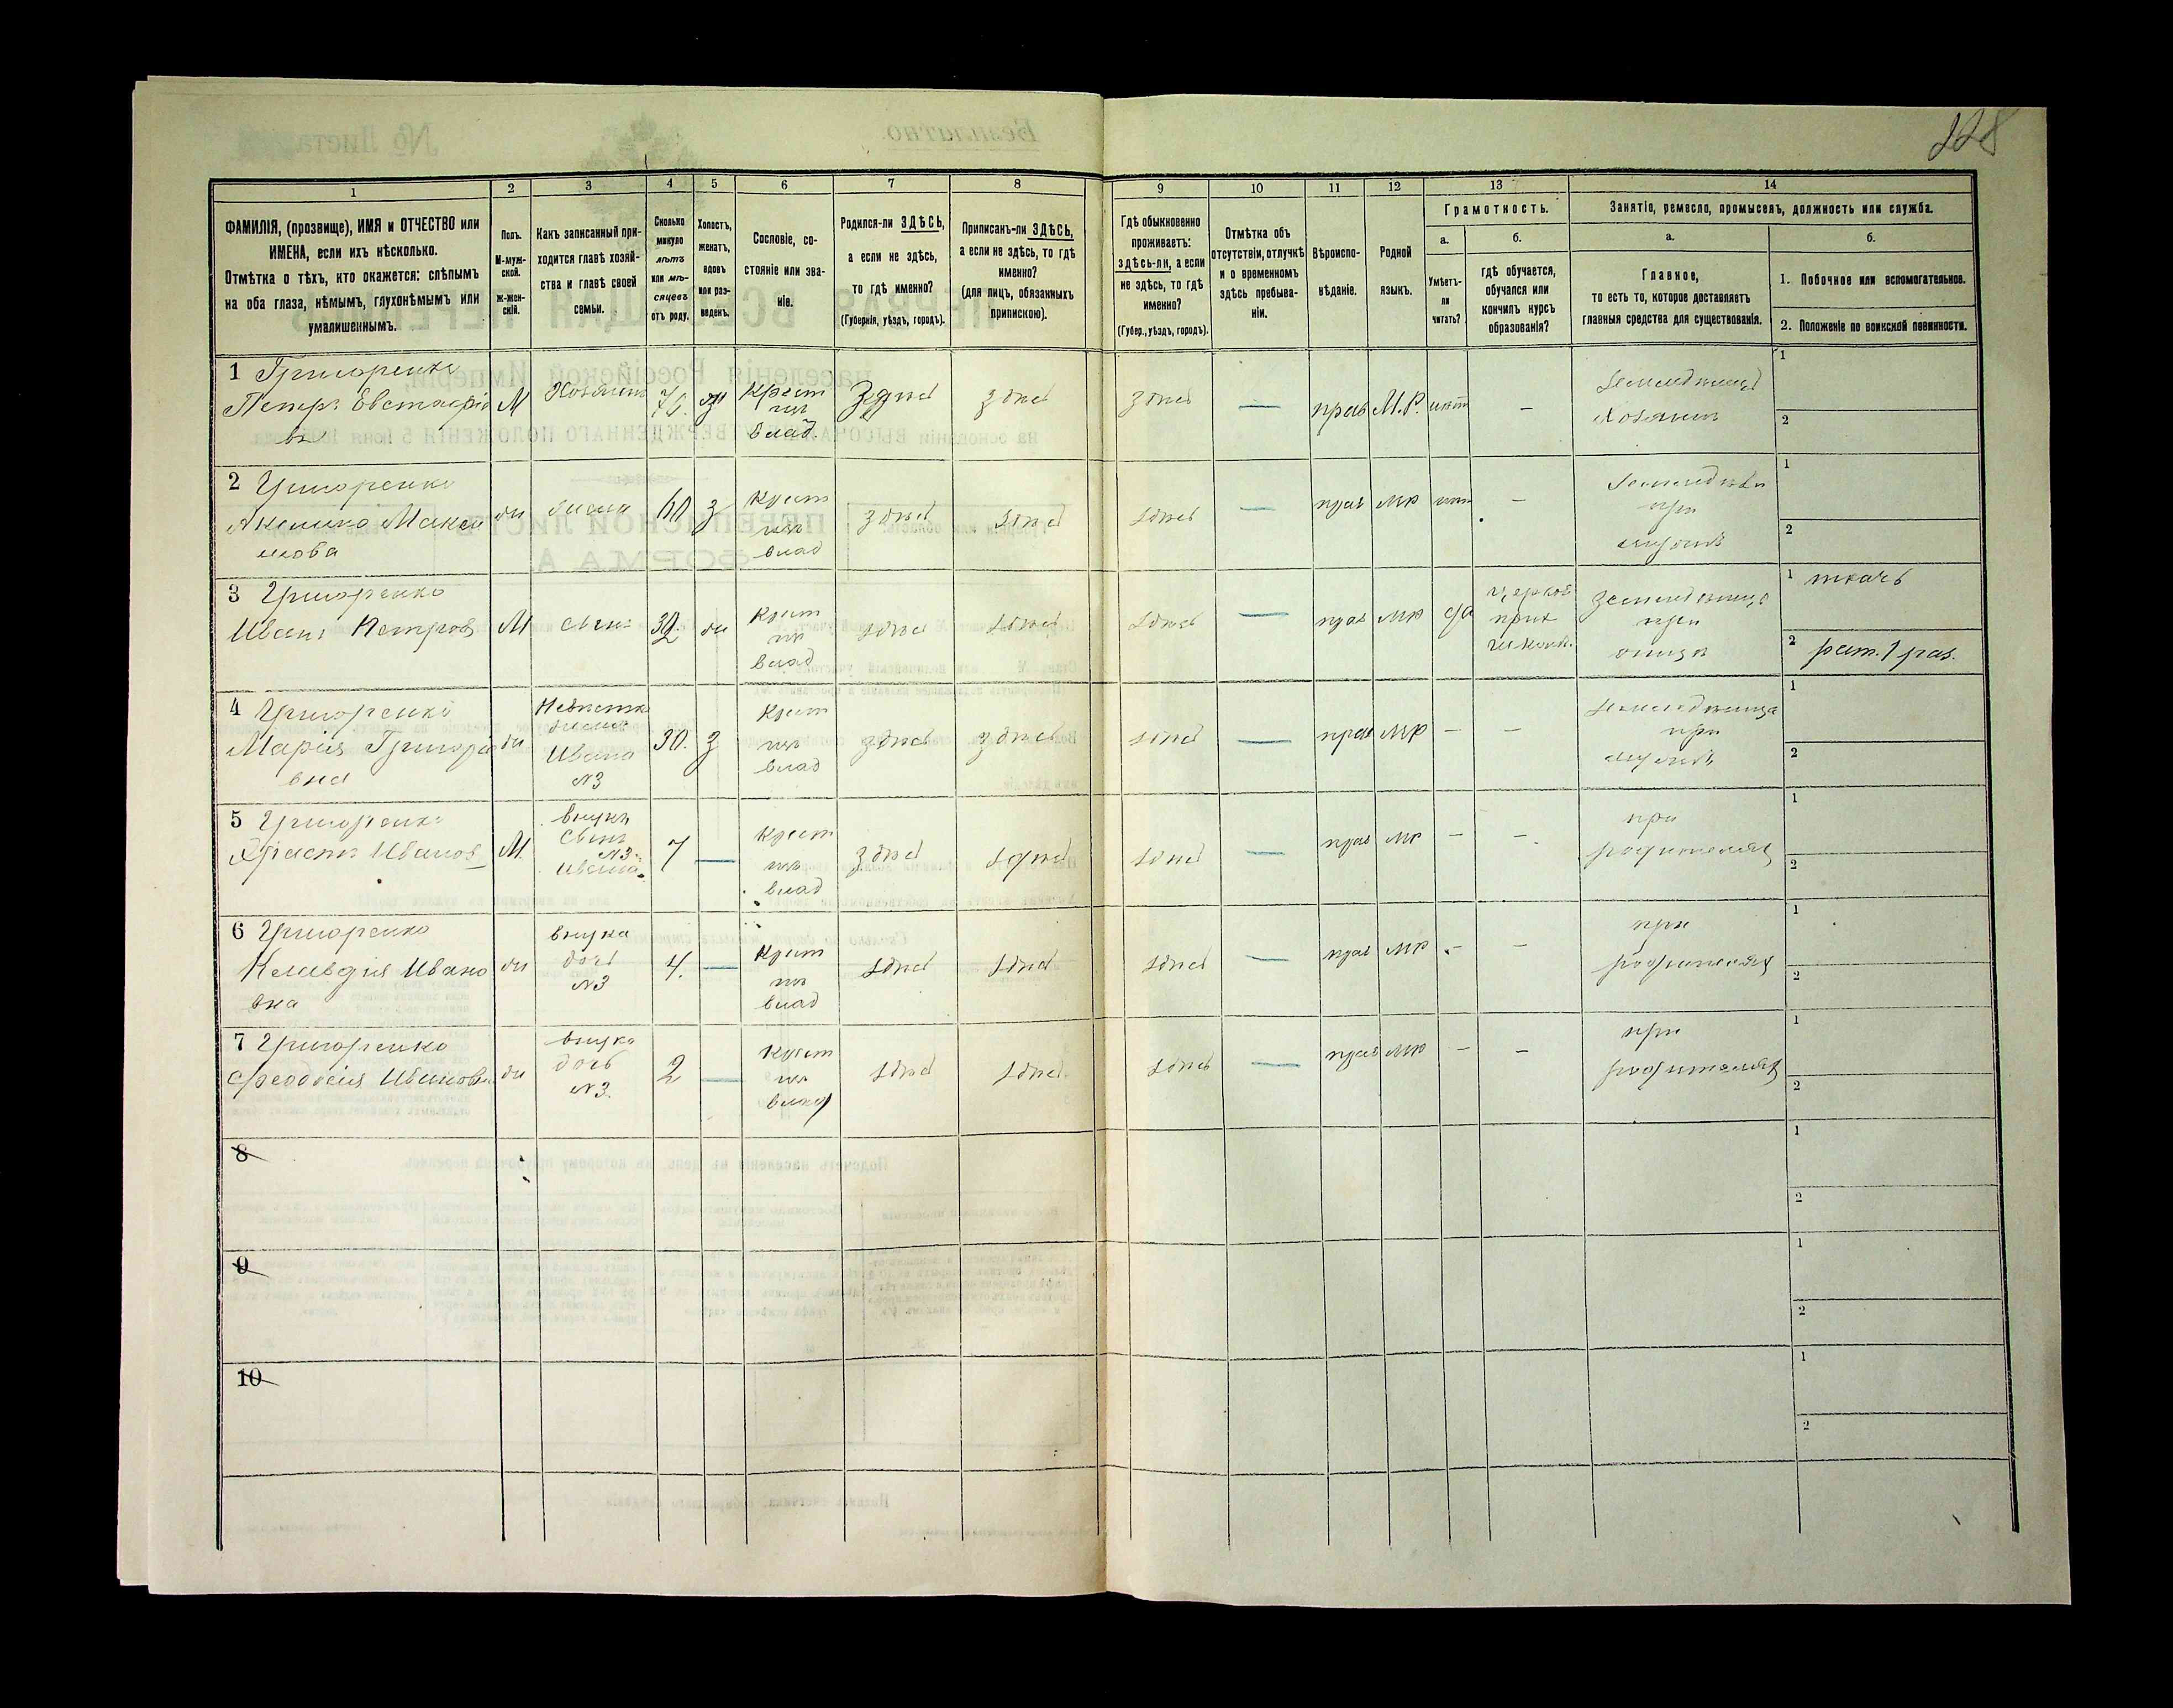 228
1 2 3 4 5 6 7 8 9 10 11 12 13 14
ФАМИЛІЯ, (прозвище), ИМЯ и ОТЧЕСТВО или
ИМЕНА, если ихъ нѣсколько.
Отмѣтка о тѣхъ, кто окажется: слѣпымъ
на оба глаза, нѣмымъ, глухонѣмымъ или
умалишеннымъ.
Полъ.
М-муж-
ской.
Ж-жен-
скій.
Какъ записанный при-
ходится главѣ хозяй-
ства и главѣ своей
семьи.
Сколько
минуло
лѣтъ
или мѣ-
сяцевъ
отъ роду.
Холостъ,
женатъ,
вдовъ
или раз-
веденъ.
Сословіе, со-
стояніе или зва-
ніе.
Родился-ли ЗДѢСЬ,
а если не здѣсь,
то гдѣ именно?
(Губернія, уѣздъ, городъ).
Приписанъ-ли ЗДѢСЬ,
а если не здѣсь, то гдѣ
именно?
(для лицъ, обязанныхъ
припискою).
Гдѣ обыкновенно
проживаетъ:
здѣсь-ли, а если
не здѣсь, то гдѣ
именно?
(Губер., уѣздъ, городъ).
Отмѣтка объ
отсутствіи, отлучкѣ
и о временномъ
здѣсь пребыва-
ніи.
Вѣроиспо-
вѣданіе.
Родной
языкъ.
Грамотность.
а.
Умѣетъ-
ли
читать?
б.
гдѣ обучается,
обучался или
кончилъ курсъ
образованія?
Занятіе, ремесло, промыселъ, должность или служба.
а.
Главное,
то есть то, которое доставляетъ
главныя средства для существованія.
б.
1. Побочное или вспомогательное.
2. Положеніе по воинской повинности.
1 Григоренко
Петръ Евстафіе
въ
М
Хозяинъ
70.
Крест
изъ
влад.
Здѣсь
здѣсь
здѣсь
—
прав
М.Р.
нѣт
—
Земледѣлецъ
Хозяинъ
1
2
2 Григоренко
Макси
мова
жи
жена
60
з
Крест
изъ
влад
здѣсь
здѣсь
здѣсь
—
прав
мр
нѣт
—
при
мужѣ
1
2
3 Григоренко
Иванъ Петров
М
сынъ
32
жи
Крест
изъ
влад
здѣсь
здѣсь
здѣсь
—
прав
мр
да
церков
прих
школѣ.
Земледѣлецъ
при
отцѣ
1 ткачъ
2 рат. 1 раз.
4 Григоренко
Марія Григорье
вна
жи
Невѣстка
жена
Ивана
N3
30.
з
Крест
изъ
влад
здѣсь
здѣсь
здѣсь
—
прав
мр
—
—
при
мужѣ
1
2
5 Григоренко
Иванов
М.
внукъ
сынъ
N3
Ивана
7
—
Крест
изъ
влад
здѣсь
здѣсь
здѣсь
—
прав
мр
—
—
при
родителях
1
2
6 Григоренко
Клавдія Ивано
вна
жи
внука
дочь
N3
4.
—
Крест
изъ
влад
здѣсь
здѣсь
здѣсь
—
прав
мр
—
—
при
родителях
1
2
7 Григоренко
Феодосія Ивановн
жи
внука
дочь
N3.
2
—
Крест
изъ
влад
здѣсь
здѣсь
здѣсь
—
прав
мр
—
—
при
родителях
1
2
8
1
2
9
1
2
10
1
2